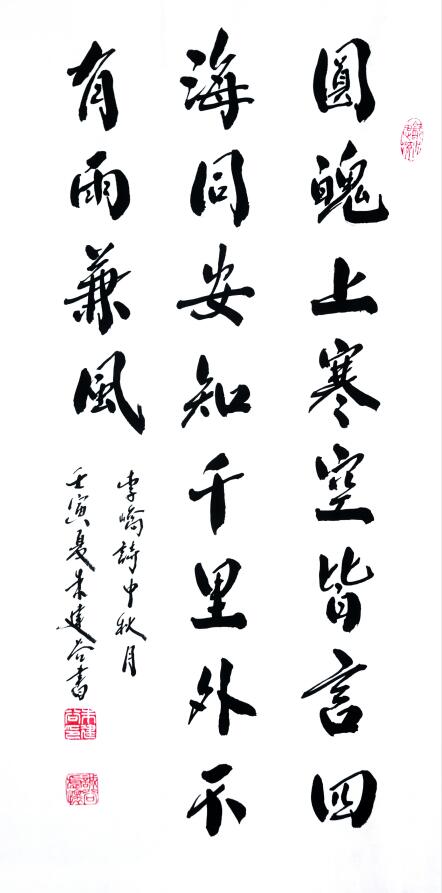 圓魄上寒空皆言四
海同安知千里外不
有雨兼風
李嶠詩中秋月
壬寅夏朱建谷書